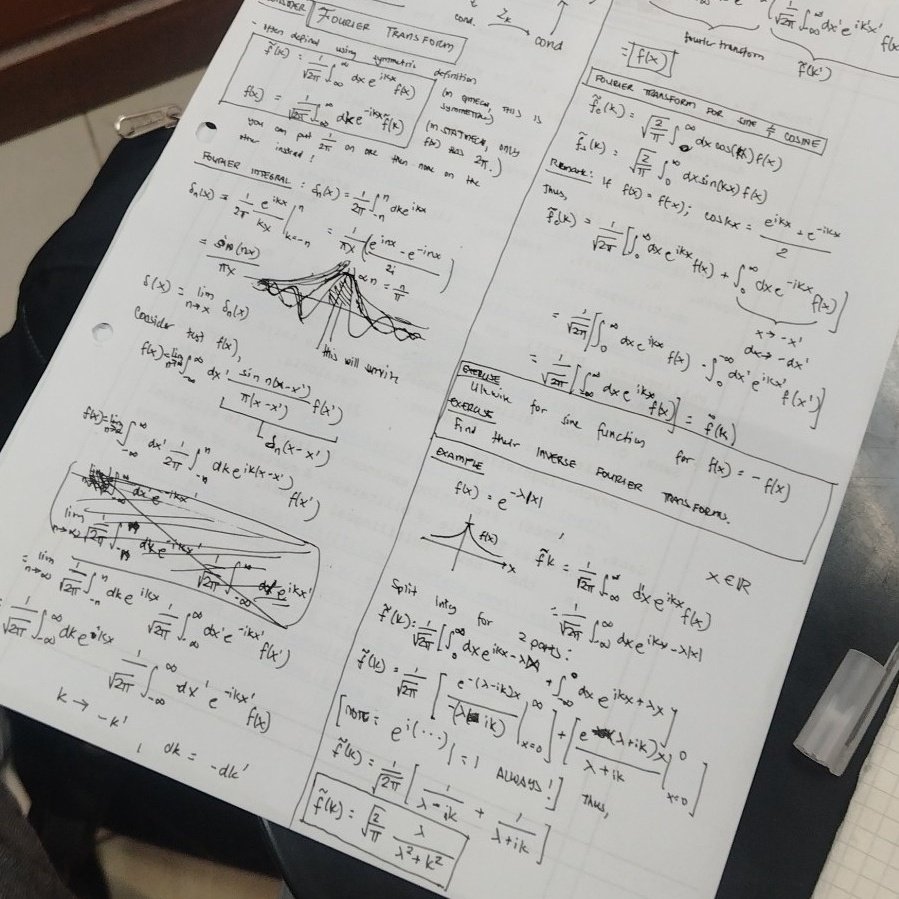 cond. Z_k
cond
CONSIDER FOURIER TRANSFORM
- often defined using symmetric definition
f̃(k) = 1/√2π ∫_-∞^∞ dx e^{ikx} f(x)
f(x) = 1/√2π ∫_-∞^∞ dk e^{-ikx} f̃(k)
(in QMECH, this is symmetric)
(in STATMECH, only f(x) has 2π.)
you can put 1/2π on one then none on the other instead!
FOURIER INTEGRAL : δ_n(x) = 1/2π ∫_-n^n dk e^{ikx}
δ_n(x) = 1/2π e^{ikx}/ix |_{k=-n}^n = 1/πx (e^{inx} - e^{-inx} / 2i)
= sin(nx)/πx
= n/π
δ(x) = lim_{n→∞} δ_n(x)
this will survive
Consider test f(x),
f(x) = lim_{n→∞} ∫_-∞^∞ dx' sin n(x-x')/π(x-x') f(x')
δ_n(x-x')
f(x) = lim_{n→∞} ∫_-∞^∞ dx' 1/2π ∫_-n^n dk e^{ik(x-x')} f(x')
= lim_{n→∞} 1/√2π ∫_-n^n dk e^{ikx} 1/√2π ∫_-∞^∞ dx' e^{-ikx'} f(x')
= 1/√2π ∫_-∞^∞ dk e^{ikx}
1/√2π ∫_-∞^∞ dx' e^{-ikx'} f(x)
k → -k' , dk = -dk'
(1/√2π ∫_-∞^∞ dx' e^{ikx'} f(x
fourier transform f̃(k')
= f(x)
FOURIER TRANSFORM FOR SINE & COSINE
f̃_c(k) = √2/π ∫_0^∞ dx cos(kx) f(x)
f̃_s(k) = √2/π ∫_0^∞ dx sin(kx) f(x)
Remark: If f(x) = f(-x); cos kx = e^{ikx} + e^{-ikx} / 2
Thus,
f̃_c(k) = 1/√2π [∫_0^∞ dx e^{ikx} f(x) + ∫_0^∞ dx e^{-ikx} f(x)]
x → -x'
dx → -dx'
= 1/√2π [∫_0^∞ dx e^{ikx} f(x) - ∫_0^-∞ dx' e^{ikx'} f(x')]
= 1/√2π [∫_-∞^∞ dx e^{ikx} f(x)] = f̃(k)
EXERCISE
Likewise for sine function for f(x) = -f(x)
EXERCISE
Find their INVERSE FOURIER TRANSFORMS.
EXAMPLE
f(x) = e^{-λ|x|} , x ∈ ℝ
f(x)
x
f̃k = 1/√2π ∫_-∞^∞ dx e^{ikx} f(x)
= 1/√2π ∫_-∞^∞ dx e^{ikx - λ|x|}
Split intg for 2 parts:
f̃(k) = 1/√2π [∫_0^∞ dx e^{ikx-λx} + ∫_-∞^0 dx e^{ikx+λx}]
f̃(k) = 1/√2π [e^{-(λ-ik)x}/-(λ-ik) |_{x=0}^∞] + [e^{(λ+ik)x}/λ+ik |_{x=0}^0]
[NOTE: e^{i(...)} | = 1 ALWAYS!] Thus,
f̃(k) = 1/√2π [1/λ-ik + 1/λ+ik]
f̃(k) = √2/π λ/λ²+k²